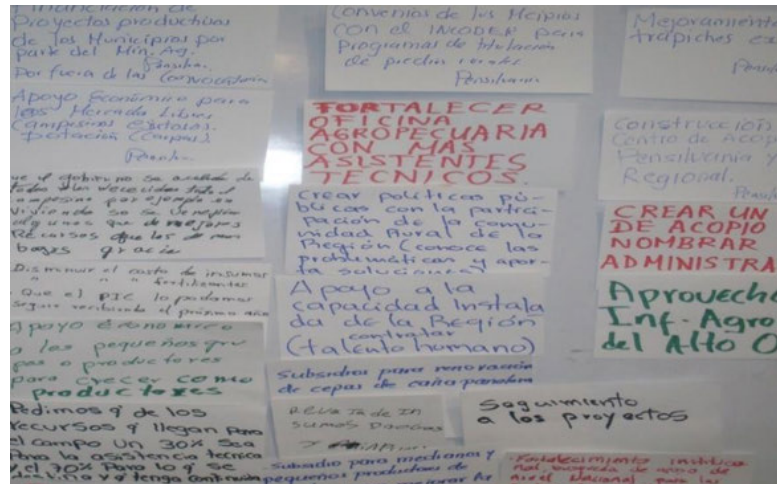 Financiación de
Proyectos productivos
de los Municipios por
park del Min. Ag.
Por fuera de las
Apoyo Económico para
los Mercado Libres
Campesinos
Dotación (carpas)
que el gobierno se
campesino por ejemplo en
vivienda
algunas que
Recursos que los
bases gracia
Disminuir el costo de insumos
" " " fertilizantes
Que el PIC lo podamos
seguir recibiendo el próximo año
Apoyo económico
a los pequeños gru
pos o productores
para crecer como
productores
Pedimos q de los
recursos q llegan para
el campo Un 30% Sea
Para la asistencia tecnica
y el 70% Para lo q se
destino y q tenga
Convenios de los Mcipios
con el INCODER para
programas de titulación
de predios rurales
Pensilvania
FORTALECER
OFICINA
AGROPECUARIA
CON MAS
ASISTENTES
TECNICOS.
Crear políticas pú-
blicas con la partici-
pación de la comu-
nidad Rural de la
Región (conoce las
problemáticas y apor-
ta soluciones)
Apoyo a la
capacidad Instala
da de la Región
contratar
(talento humano)
Subsidios para renovación
de cepas de caña panelera
sumos
Subsidio para medianos y
pequeños productores de
Mejoramiento
trapiches
Construcción
Centro de Acop
Pensilvania y
Regional.
CREAR UN
DE ACOPIO
NOMBRAR
ADMINISTRA
Aprovecha
Inf. Agro
del Alto O
Seguimiento
a los proyectos
Fortalecimiento
nal, busqueda de apoyo de
nivel Nacional para las